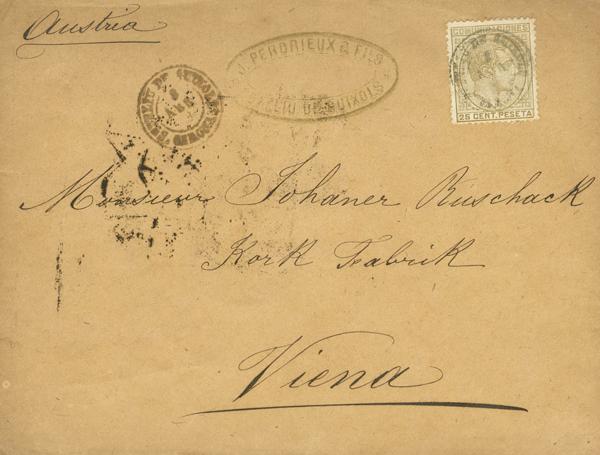 Austria
J. PERDRIEUX & FILS
FELIU DE GUIXOLS
COMUNICACIONES
25 CENT. PESETA
Monsieur Johaner Ruschack
Kork Fabrik
Viena